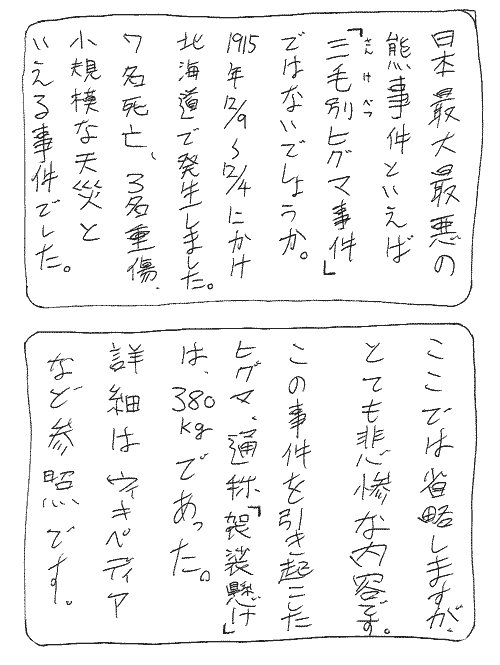 日本最大最悪の
熊事件といえば
「三毛別ヒグマ事件」
さんけべつ
ではないでしょうか。
1915年12/9〜12/4にかけ
北海道で発生しました。
7名死亡、3名重傷、
小規模な天災と
いえる事件でした。
ここでは省略しますが、
とても悲惨な内容です。
この事件を引き起こした
ヒグマ、通称「袈裟懸け」
は、380kgであった。
詳細はウィキペディア
など参照です。